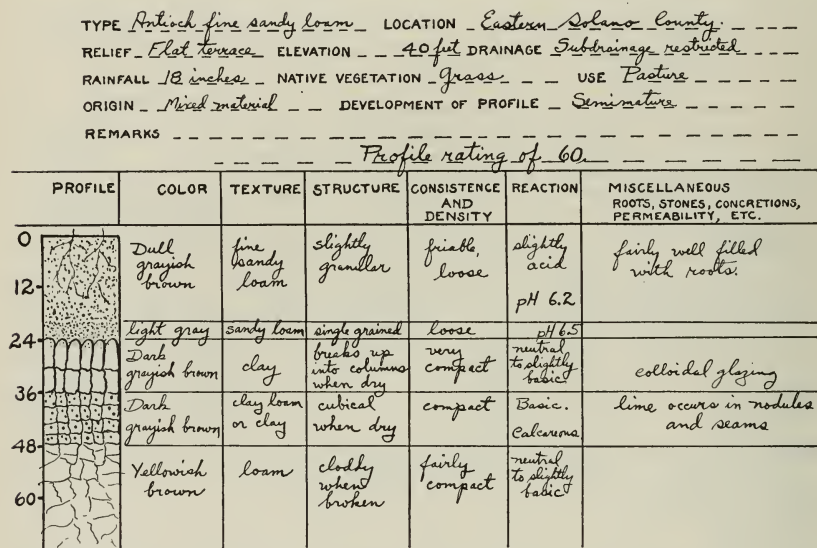 TYPE Antioch fine sandy loam LOCATION Eastern Solano County.
RELIEF Flat terrace ELEVATION 40 feet DRAINAGE Subdrainage restricted
RAINFALL 18 inches NATIVE VEGETATION Grass USE Pasture
ORIGIN Mixed material DEVELOPMENT OF PROFILE Semimature
REMARKS
Profile rating of 60.
PROFILE COLOR TEXTURE STRUCTURE CONSISTENCE AND DENSITY REACTION MISCELLANEOUS
ROOTS, STONES, CONCRETIONS,
PERMEABILITY, ETC.
0
Dull
grayish
brown
fine
sandy
loam
slightly
granular
friable,
loose
slightly
acid
pH 6.2
fairly well filled
with roots.
12
light gray sandy loam single grained loose pH 6.5
24
Dark
grayish brown
clay
breaks up
into columns
when dry
very
compact
neutral
to slightly
basic
colloidal glazing
36
Dark
grayish brown
clay loam
or clay
cubical
when dry
compact
Basic.
Calcareous
lime occurs in nodules
and seams
48
Yellowish
brown
loam
cloddy
when
broken
fairly
compact
neutral
to slightly
basic
60